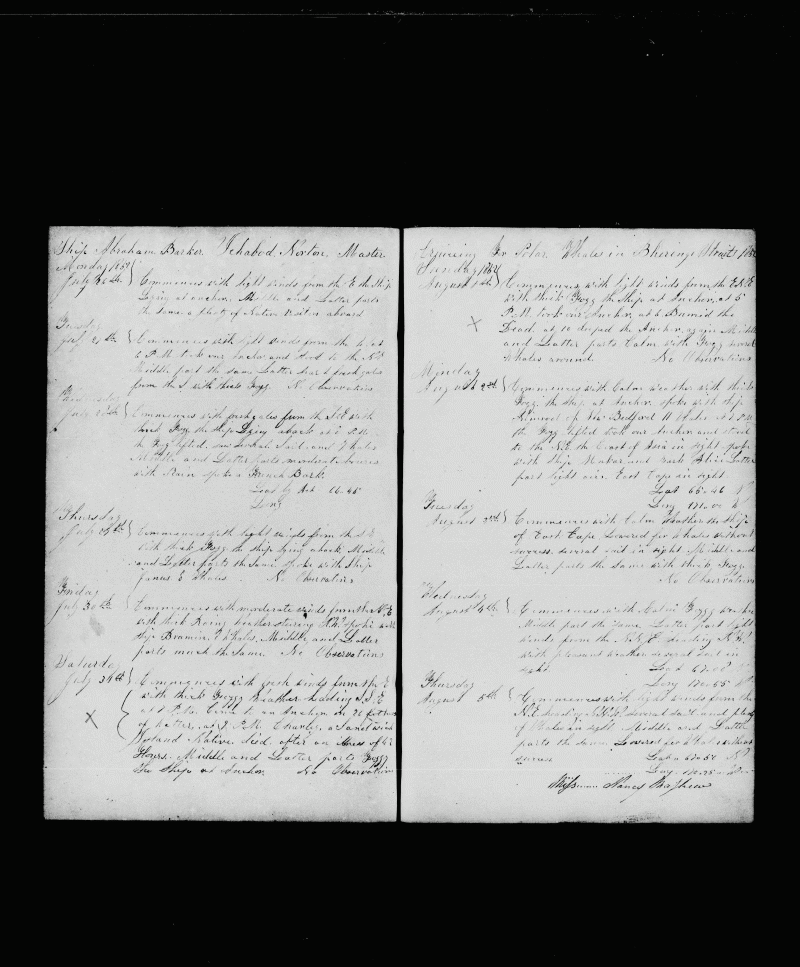 Ship Abraham Barker Ichabod Norton Master
Monday 1852
July 26th Commences with light winds from the E the Ship
Lying at anchor. Middle and Latter parts
the same a plenty of Native Visitors aboard
Tuesday
July 27th Commences with light winds from the at
6 P.M. took our Anchor and Stood to the Nd
Middle part the same Latter part fresh gales
from the S with thick Fogg. No Observations
Wednesday
July 28th Commences with fresh gales from the S E with
thick Fogg the Ship Lying aback at P.M.
the Fog lifted. saw Sail and Whales
Middle and Latter parts moderate breezes
with Rain spoke a French Bark.
Latt by Obs 66-45
Long
Thursday
July 29th Commences with light winds from the S E
with thick Fogg the ship Lying aback Middle
and Latter parts the Same spoke with Ship
E Whales No Observations
Friday
July 30th Commences with moderate winds from the N.E
with thick weather steering spoke with
Ship Bramin Whales. Middle and Latter
parts much the Same No Observations
Saturday
July 31st Commences with fresh winds from the E
with thick Foggy Weather heading S.S.E
at P.M. Came to an Anchor in 22 fathoms
of water, at 9 P.M. Charley, a Sandwich
Island Native died after an illness of 42
Hours. Middle and Latter parts Foggy
The Ship at Anchor. No Observations
Cruising For Polar Whales in Bherings Straits 1852
Sunday 1852
August 1st Commences with light winds from the E.N.E
with thick Fogg the Ship at Anchor, at 5
P.M. took our Anchor, at 6 Burried the
Dead. at 10 droped the Anchor again Middle
and Latter parts Calm with Fogg several
Whales around. No Observations
Munday
August 2nd Commences with Calm weather with thick
Fogg, the Ship at Anchor, spoke with Ship
Nimrod of New Bedford 11 Whales at 2 P.M.
the Fogg lifted took our Anchor and stood
to the N.E. the Coast of Asia in sight spoke
with Ship and Bark Alice Latter
part light airs East Cape in sight
Latt 65-46 N
Long 170-00 W
Tuesday
August 3rd Commences with Calm Weather the Ship
of East Cape Lowered for Whales without
sucsess. several sail in sight. Middle and
Latter parts the Same with thick Fogg.
No Observations
Wednesday
August 4th Commences with Calm Foggy weather
Middle part the same, Latter part light
winds from the N.N.E. heading
with pleasant weather several Sail in
sight. Latt 67-00 N
Long 170-55 W
Thursday
August 5th Commences with light winds from the
N.E. heading N.W. several sail and plenty
of in sight Middle and Latter
parts the same Lowered for Whales without
sucsess Latt N
Long
Nancy Mayhew